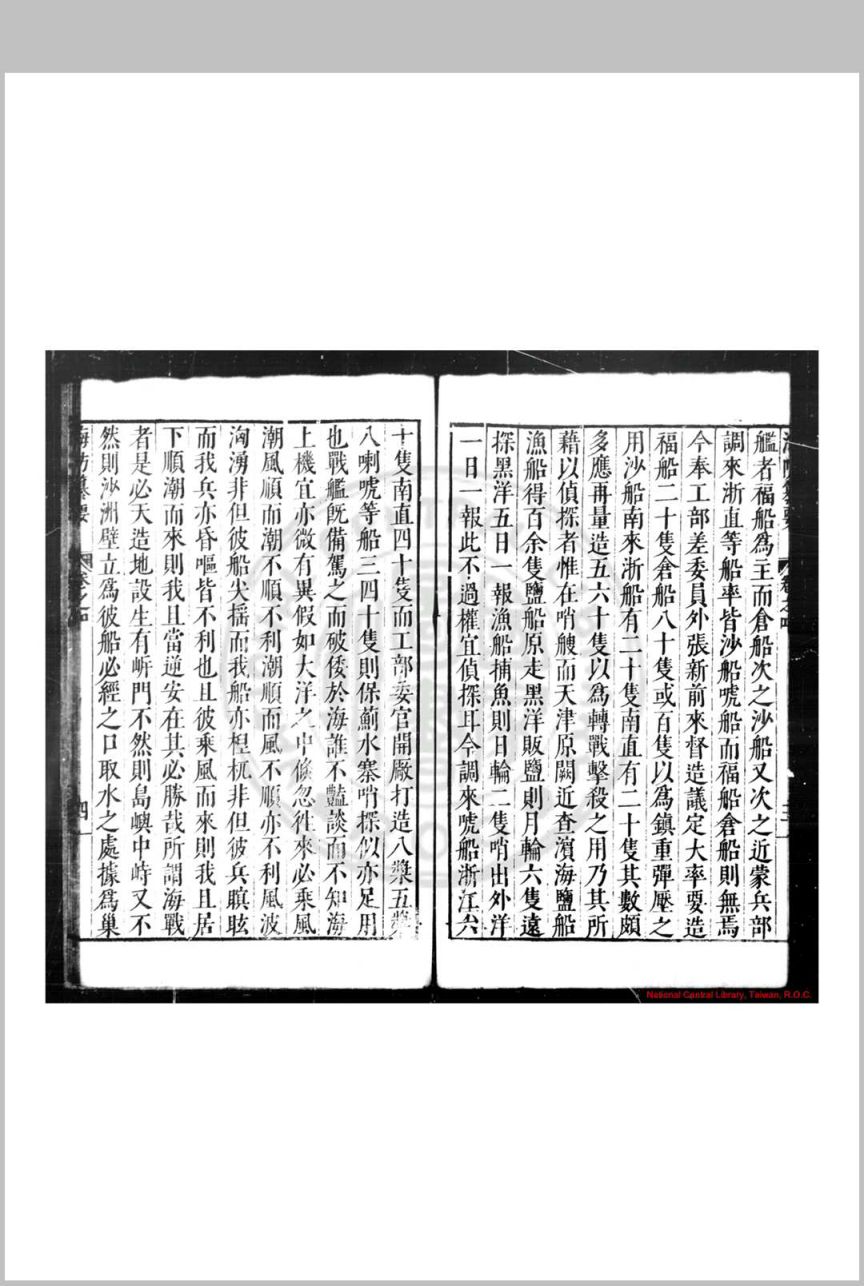 艦者福船爲主而倉船次之沙船又次之近蒙兵部
調來浙直等船率皆沙船唬船而福船倉船則無焉
今奉工部差委員外張新前來督造議定大率要造
福船二十隻倉船八十隻或百隻以爲鎭重彈壓之
用沙船南來浙船有二十隻南直有二十隻其數頗
多應再量造五六十隻以爲轉戰擊殺之用乃其所
藉以偵探者惟在哨艘而天津原闕近查濱海鹽船
漁船得百余隻鹽船原走黑洋販鹽則月輪六隻遠
探黑洋五日一報漁船捕魚則日輪二隻哨出外洋
一日一報此不過權宜偵探耳今調來唬船浙江六
十隻南直四十隻而工部委官開厰打造八槳五槳
八喇唬等船三四十隻則保薊水寨哨探似亦足用
也戰艦旣備駕之而破倭於海誰不豔談而不知海
上機宜亦微有異假如大洋之中倏忽徃來必乘風
潮風順而潮不順不利潮順而風不順亦不利風波
洶湧非但彼船尖揺而我船亦桯杌非但彼兵瞋眩
而我兵亦昏嘔皆不利也且彼乘風而來則我且居
下順潮而來則我且當逆安在其必勝哉所謂海戰
者是必天造地設生有㟁門不然則島嶼中峙又不
然則沙洲壁立爲彼船必經之口取水之處據爲巢
海防纂要 卷之四 四
National Central Library, Taiwan, R.O.C.